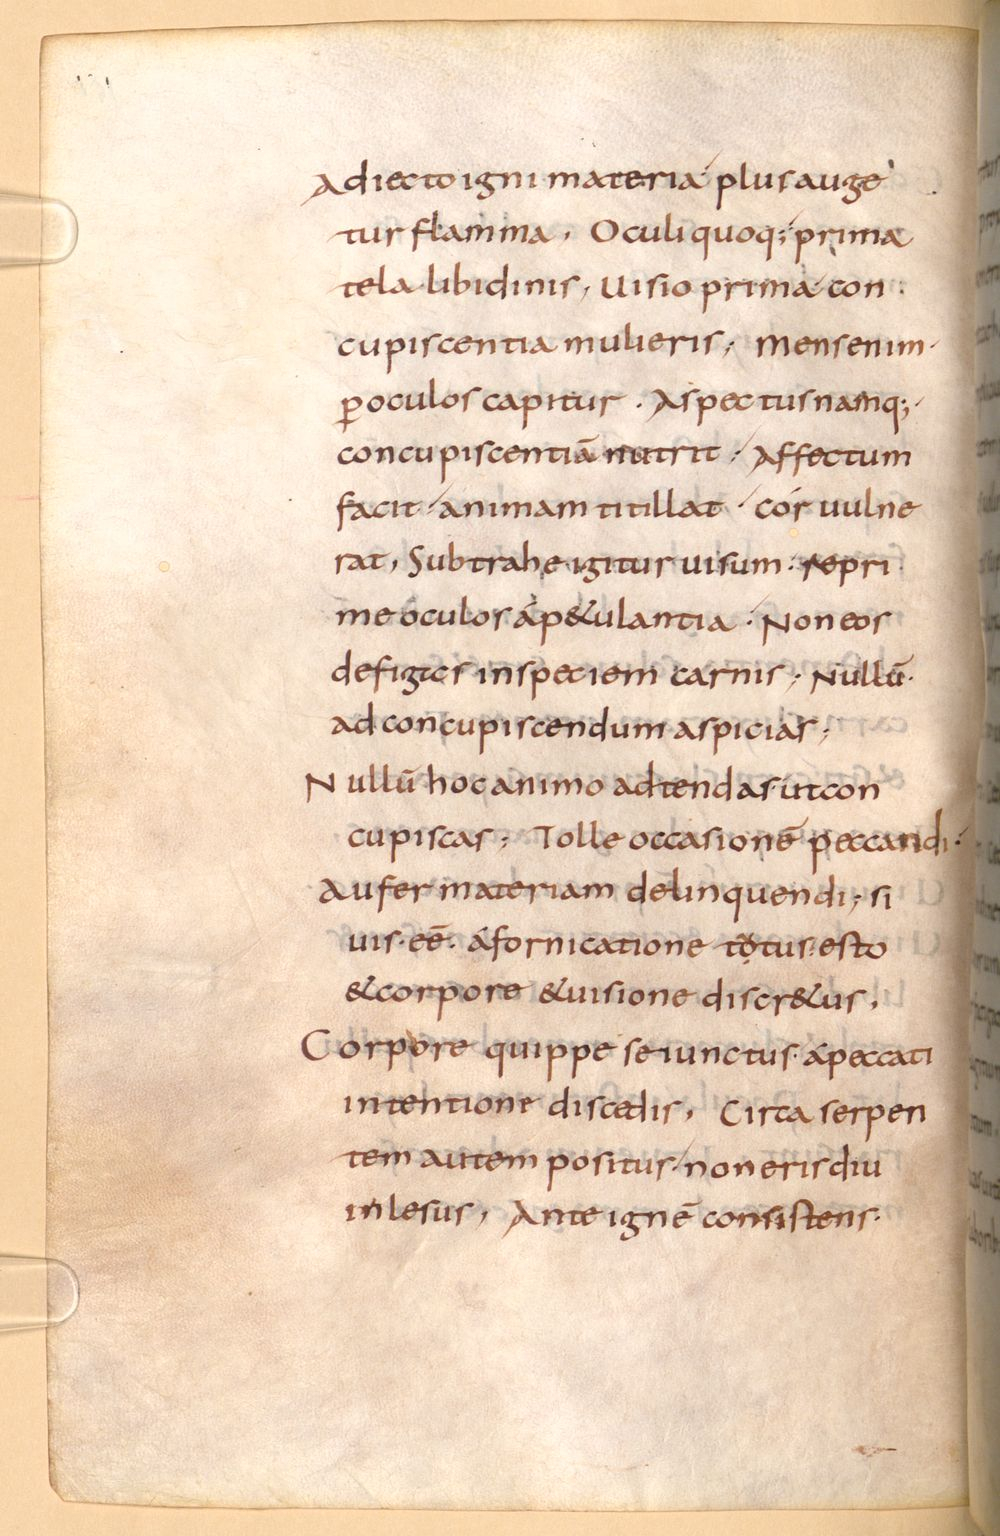 Adiecto igni materia plus auge
tur flamma, Oculi quoq; prima
tela libidinis, Uisio prima con
cupiscentia mulieris; Mens enim
ꝑ oculos capitur. Aspectus namq;
concupiscentiā nutrit. Affectum
facit. animam titillat. cór uulne
rat, Subtrahe igitur uisum. repri
me oculos á p&ulantia. Non eos
defigtes in speciem carnis; Nullū
ad concupiscendum aspicias;
Nullū hoc animo adtendas ut con
cupiscas; Tolle occasionē peccandi.
Aufer materiam delinquendi; si
uis. eē. á fornicatione totus esto
& corpore & uisione discr&us,
Corpore quippe seiunctus. á peccati
intentione discedis, Circa serpen
tem autem positus. non eris diu
inlesus, Ante ignē consistens.